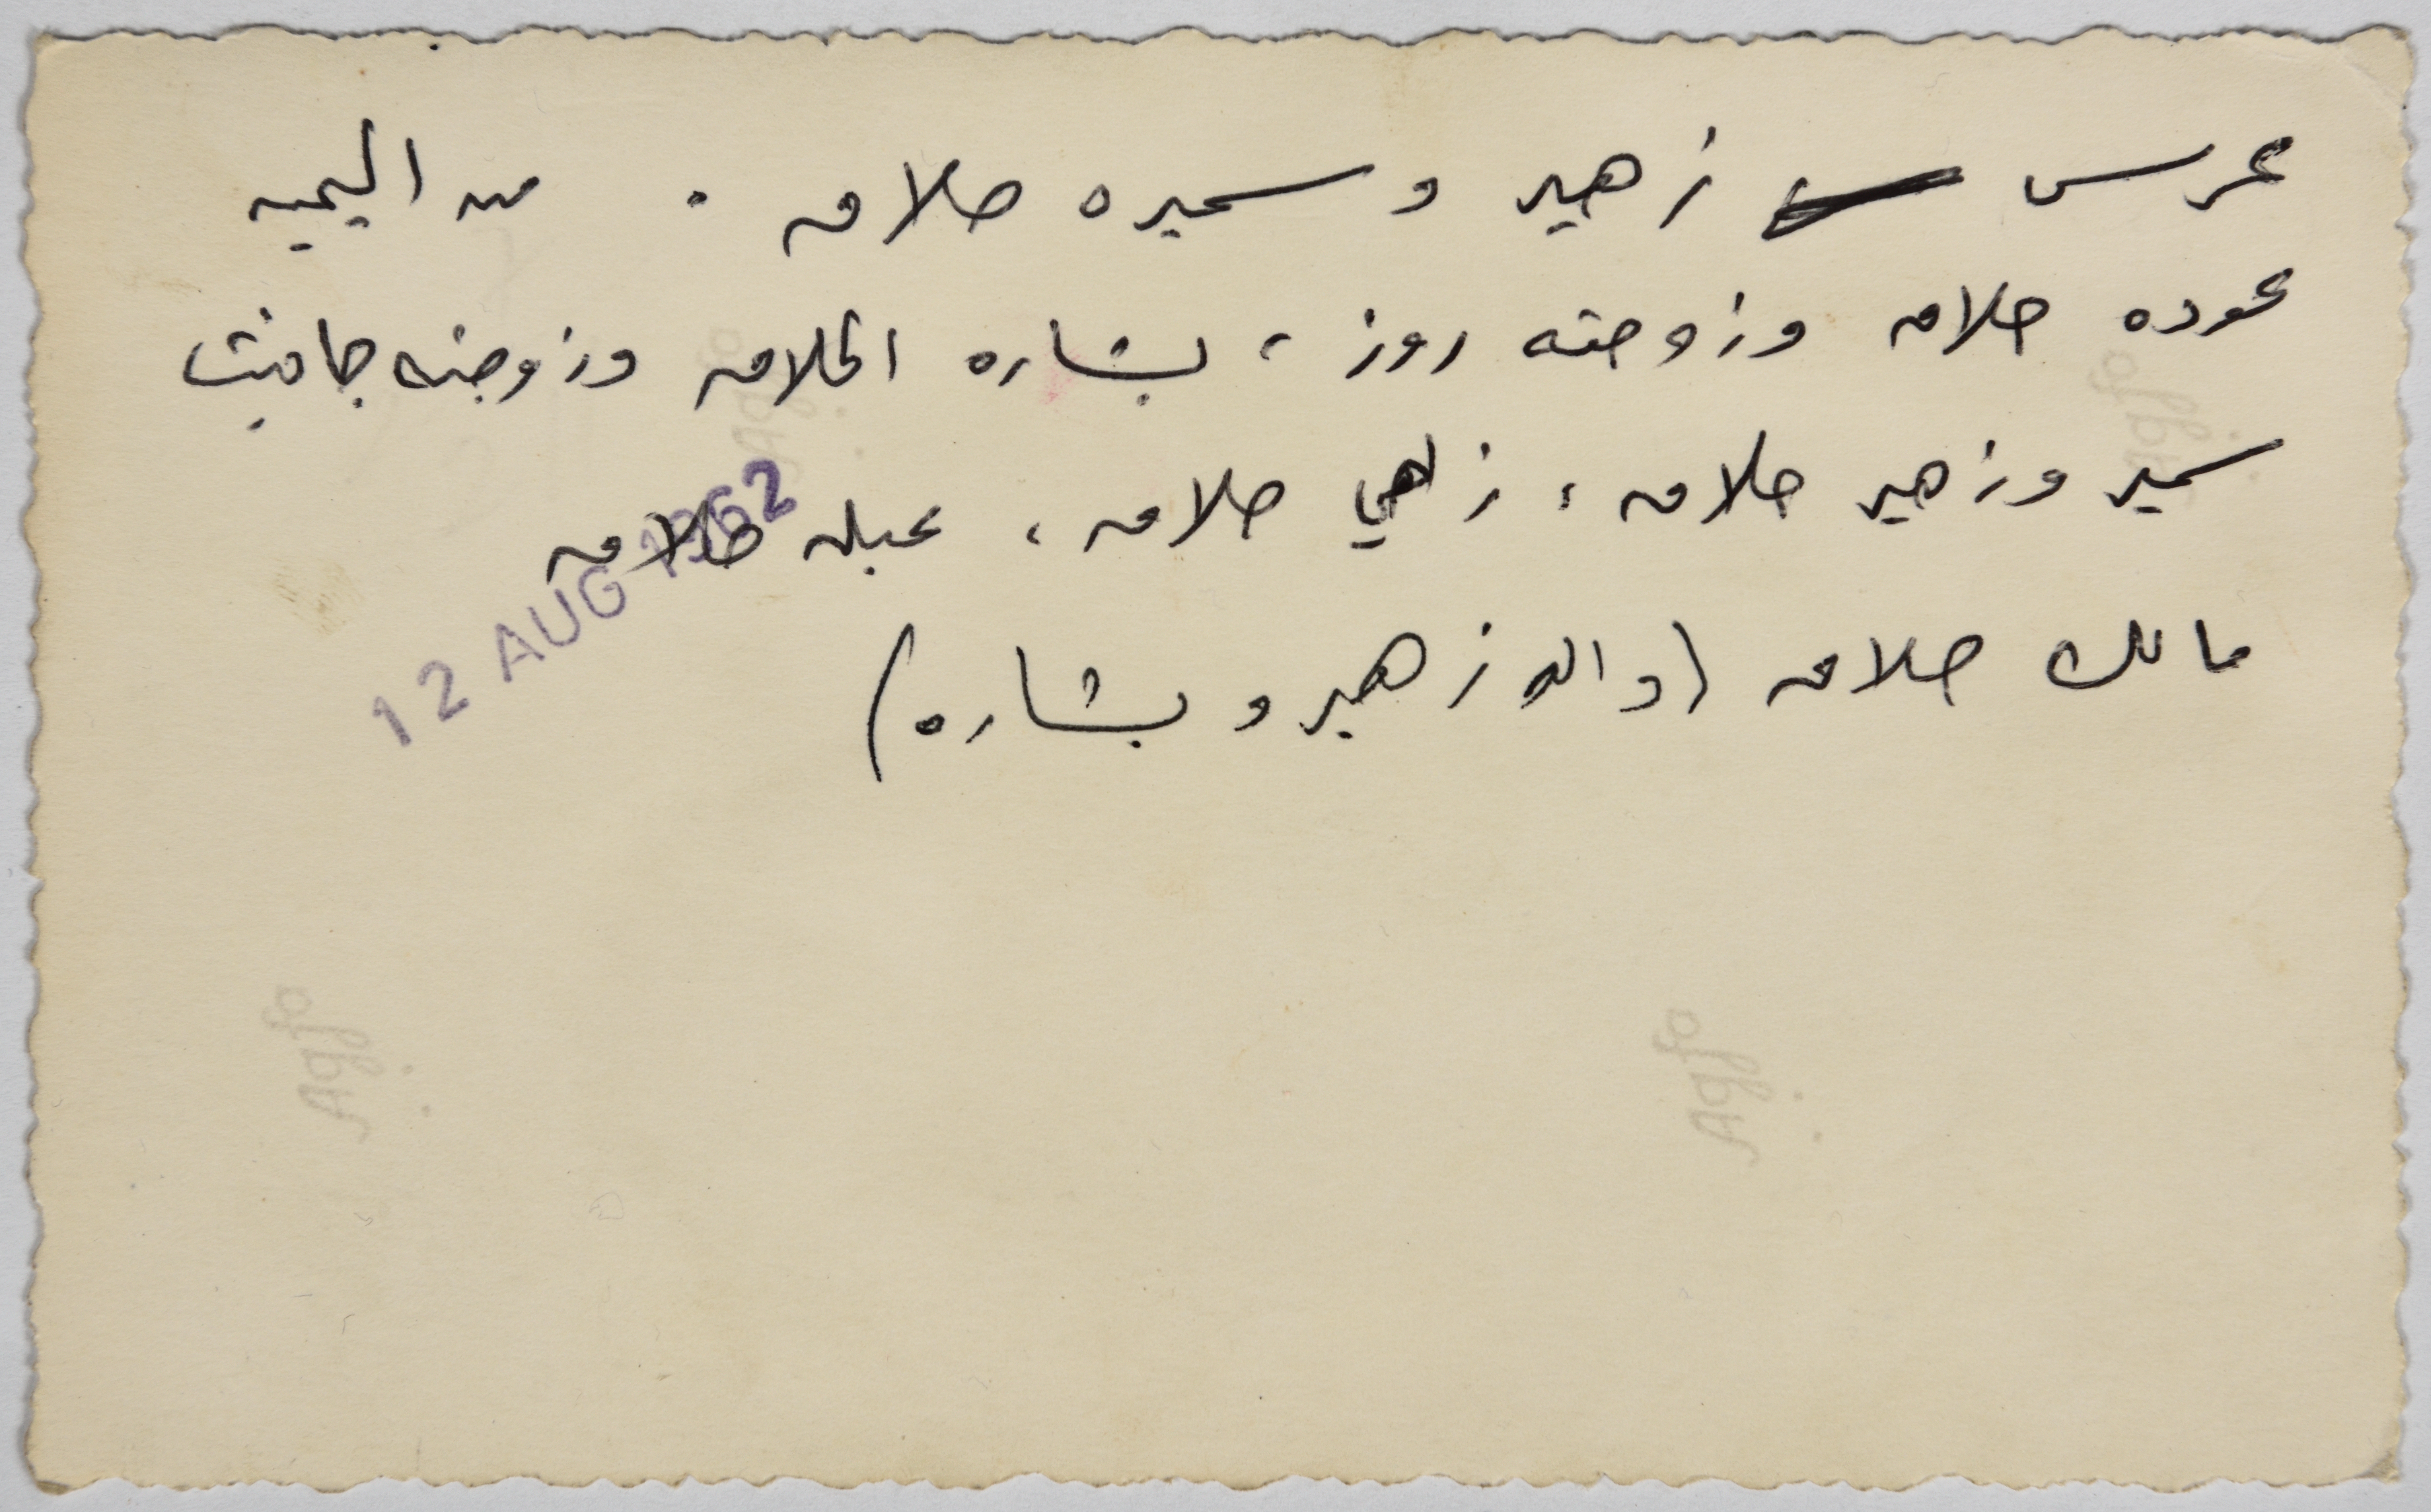 عرس زهير و سميره حلاق . من اليمين
عوده حلاق وزوجته روز ، بشاره الحلاق وزوجته جانيت
سمير وزهير حلاق ، زاهي حلاق ، عبله حلاق
مالك حلاق (والد زهير و بشاره)
12 AUG 1962
Agfa
Agfa
Agfa
Agfa